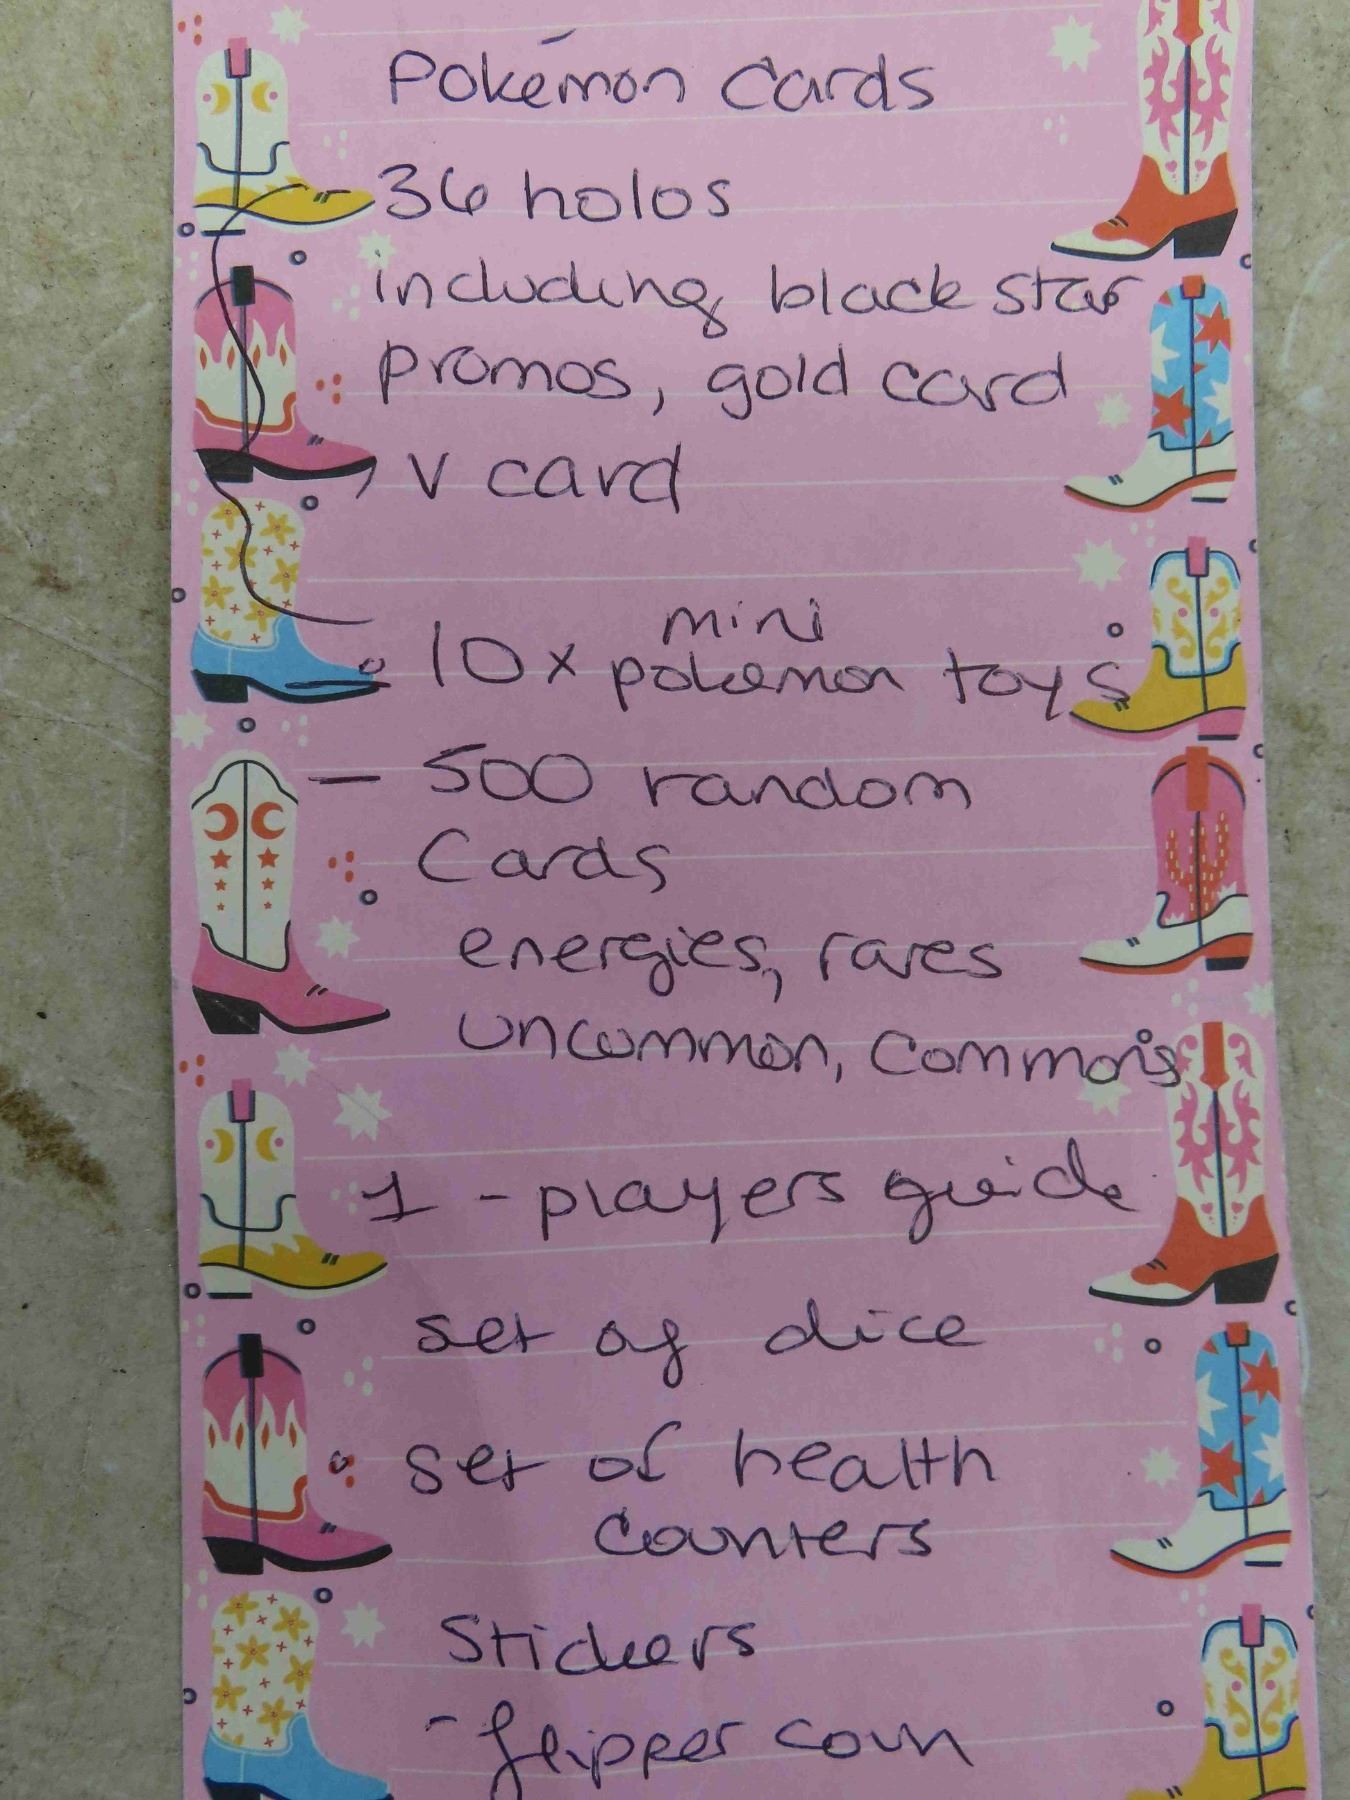 Pokémon Cards
36 holos
including black star
promos, gold card
, V card
10x mini pokemon toys
— 500 random
Cards
energies, rares
uncommon, commons
1 - players guide
set of dice
set of health
counters
Stickers
- flipper coin